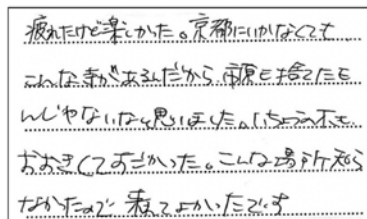 疲れたけど楽しかった。京都にいかなくても
こんな寺があるんだから、市原も捨てたも
んじゃないなと思いました。いちょうの木も
おおきくてすごかった。こんな場所知ら
なかったので来てよかったです